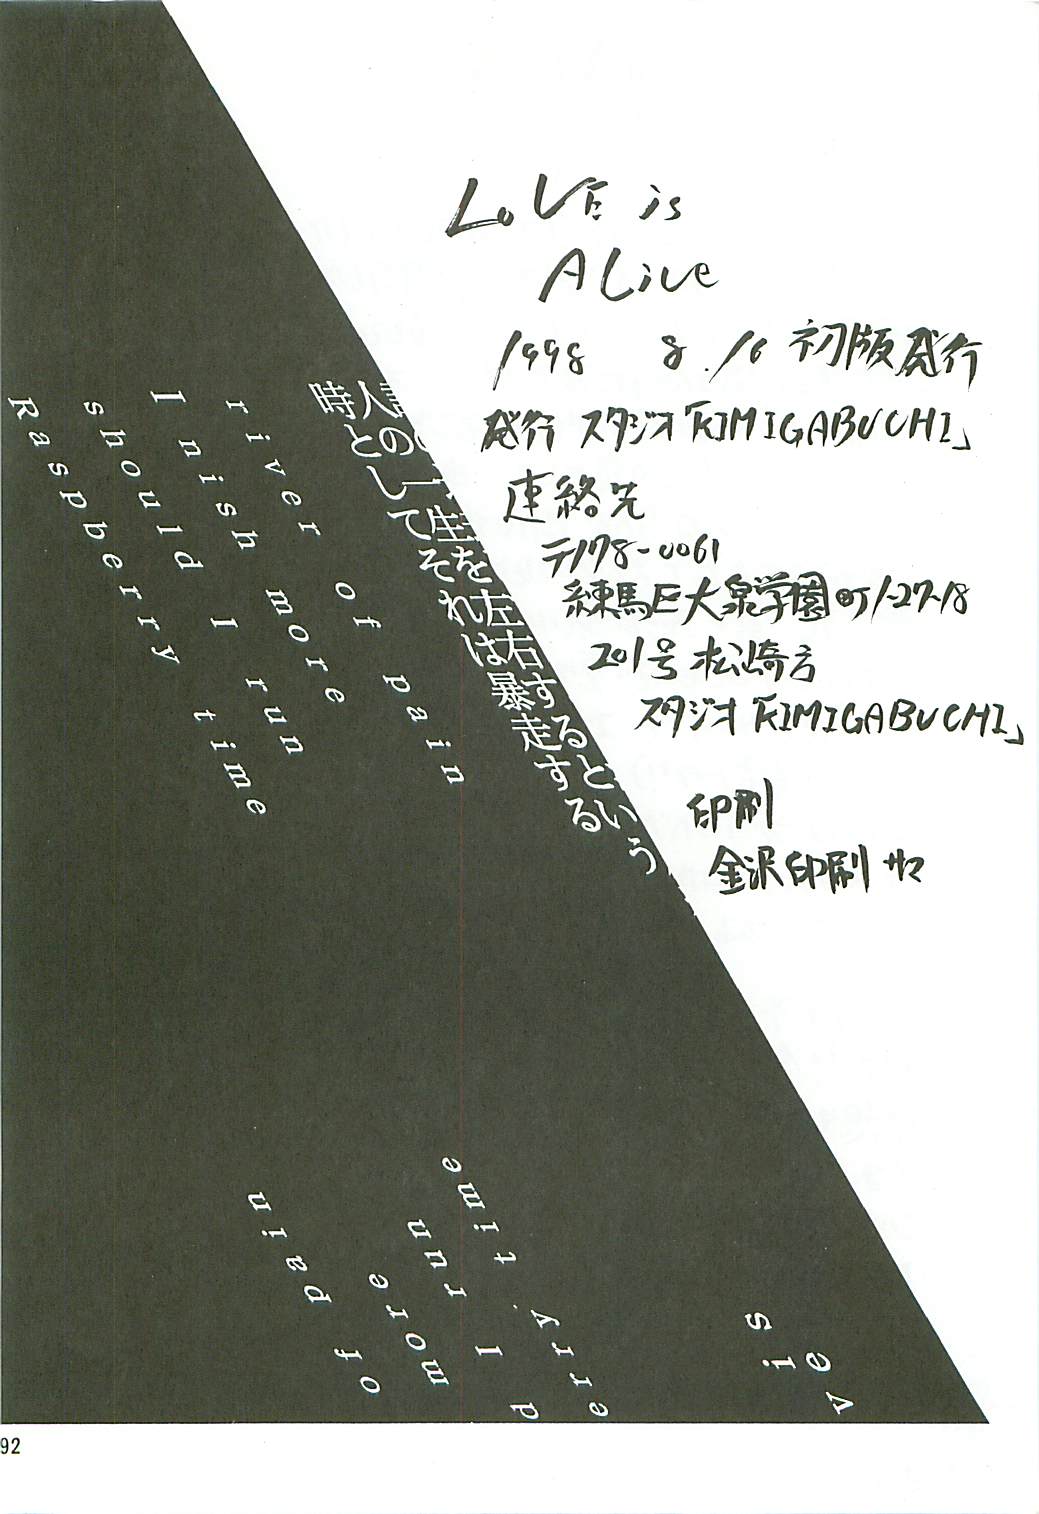 LoVE is
ALive
1998 8.16 初版発行
発行 スタジオ「KIMIGABUCHI」
連絡先
〒178-0061
練馬区大泉学園町1-27-18
201号 松崎方
スタジオ「KIMIGABUCHI」
印刷
金沢印刷 サマ
人生を左右するという
人の
時としてそれは暴走する
river of pain
I nish more
should I run
Raspberry time
ve
is
erry time
d I run
more
of pain
92